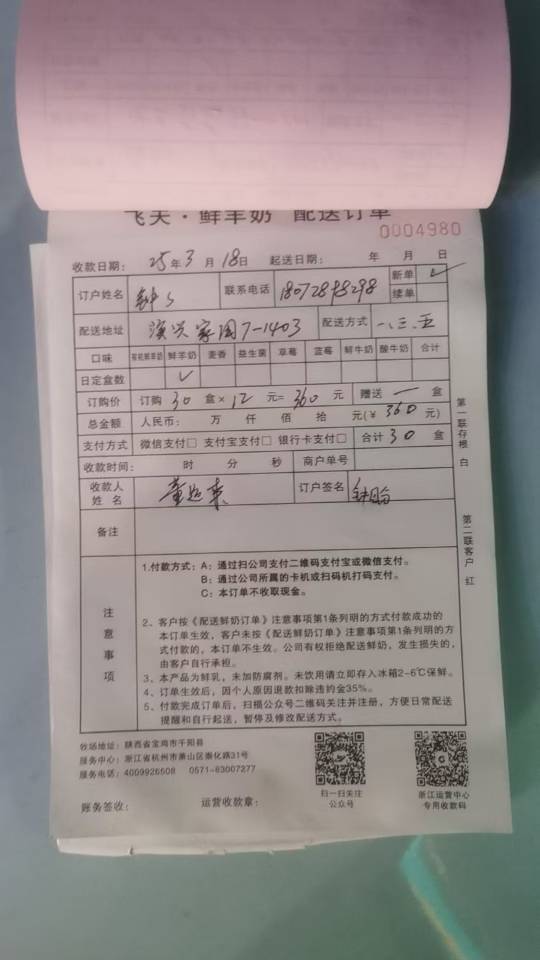 飞天·鲜羊奶 配送订单
0004980
收款日期： 25年3月18日 起送日期： 年 月 日
订户姓名 联系电话 新单 ✓
续单
配送地址 7-1403 配送方式 一、三、五
口味 有机鲜羊奶 鲜羊奶 麦香 益生菌 草莓 蓝莓 鲜牛奶 酸牛奶 合计
日定盒数 ✓
订购价 订购 30 盒×12 元=360 元 赠送 一 盒
总金额 人民币： 万 仟 佰 拾 元(¥ 360 元)
支付方式 微信支付□ 支付宝支付□ 银行卡支付□ 合计 30 盒
收款时间： 时 分 秒 商户单号
收款人姓名 订户签名
备注
第一联存根 白
第二联客户 红
注意事项
1.付款方式：A：通过扫公司支付二维码支付宝或微信支付。
B：通过公司所属的卡机或扫码机打码支付。
C：本订单不收取现金。
2、客户按《配送鲜奶订单》注意事项第1条列明的方式付款成功的
本订单生效，客户未按《配送鲜奶订单》注意事项第1条列明的方
式付款的，本订单不生效。公司有权拒绝配送鲜奶，发生损失的，
由客户自行承担。
3、本产品为鲜乳，未加防腐剂。未饮用请立即存入冰箱2-6℃保鲜。
4、订单生效后，因个人原因退款扣除违约金35%。
5、付款完成订单后，扫描公众号二维码关注并注册，方便日常配送
提醒和自行起送，暂停及修改配送方式。
牧场地址：陕西省宝鸡市千阳县
服务中心：浙江省杭州市萧山区崇化路31号
服务电话：4009926508 0571-83007277
扫一扫关注
公众号
浙江运营中心
专用收款码
账务签收： 运营收款章：